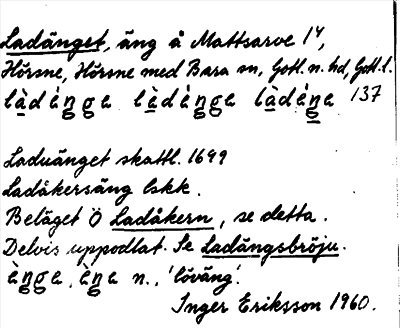 Ladänget, äng å Mattsarve 1⁴,
Hörsne, Hörsne med Bara sn, Gotl. n. hd, Gotl. l.
137
Laduänget skattl. 1699
Ladåkersäng lskk.
Beläget Ö Ladåkern, se detta.
Delvis uppodlat. Se Ladängsbröju.
n., 'löväng'.
Inger Eriksson 1960.